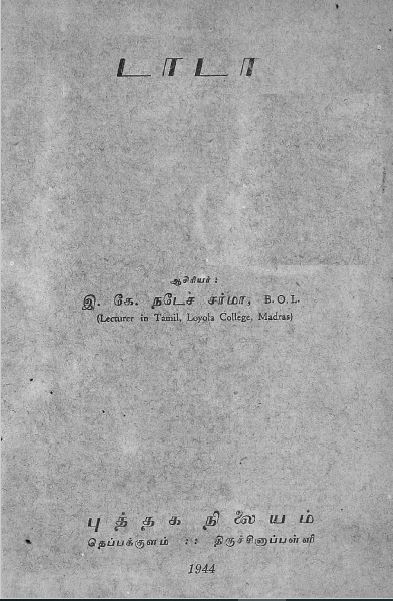 டாடா
ஆசிரியர் :
இ. கே. நடேச சர்மா, B.O.L.
(Lecturer in Tamil, Loyola College, Madras)
புத்தக நிலையம்
தெப்பக்குளம் :: திருச்சினாப்பள்ளி
1944